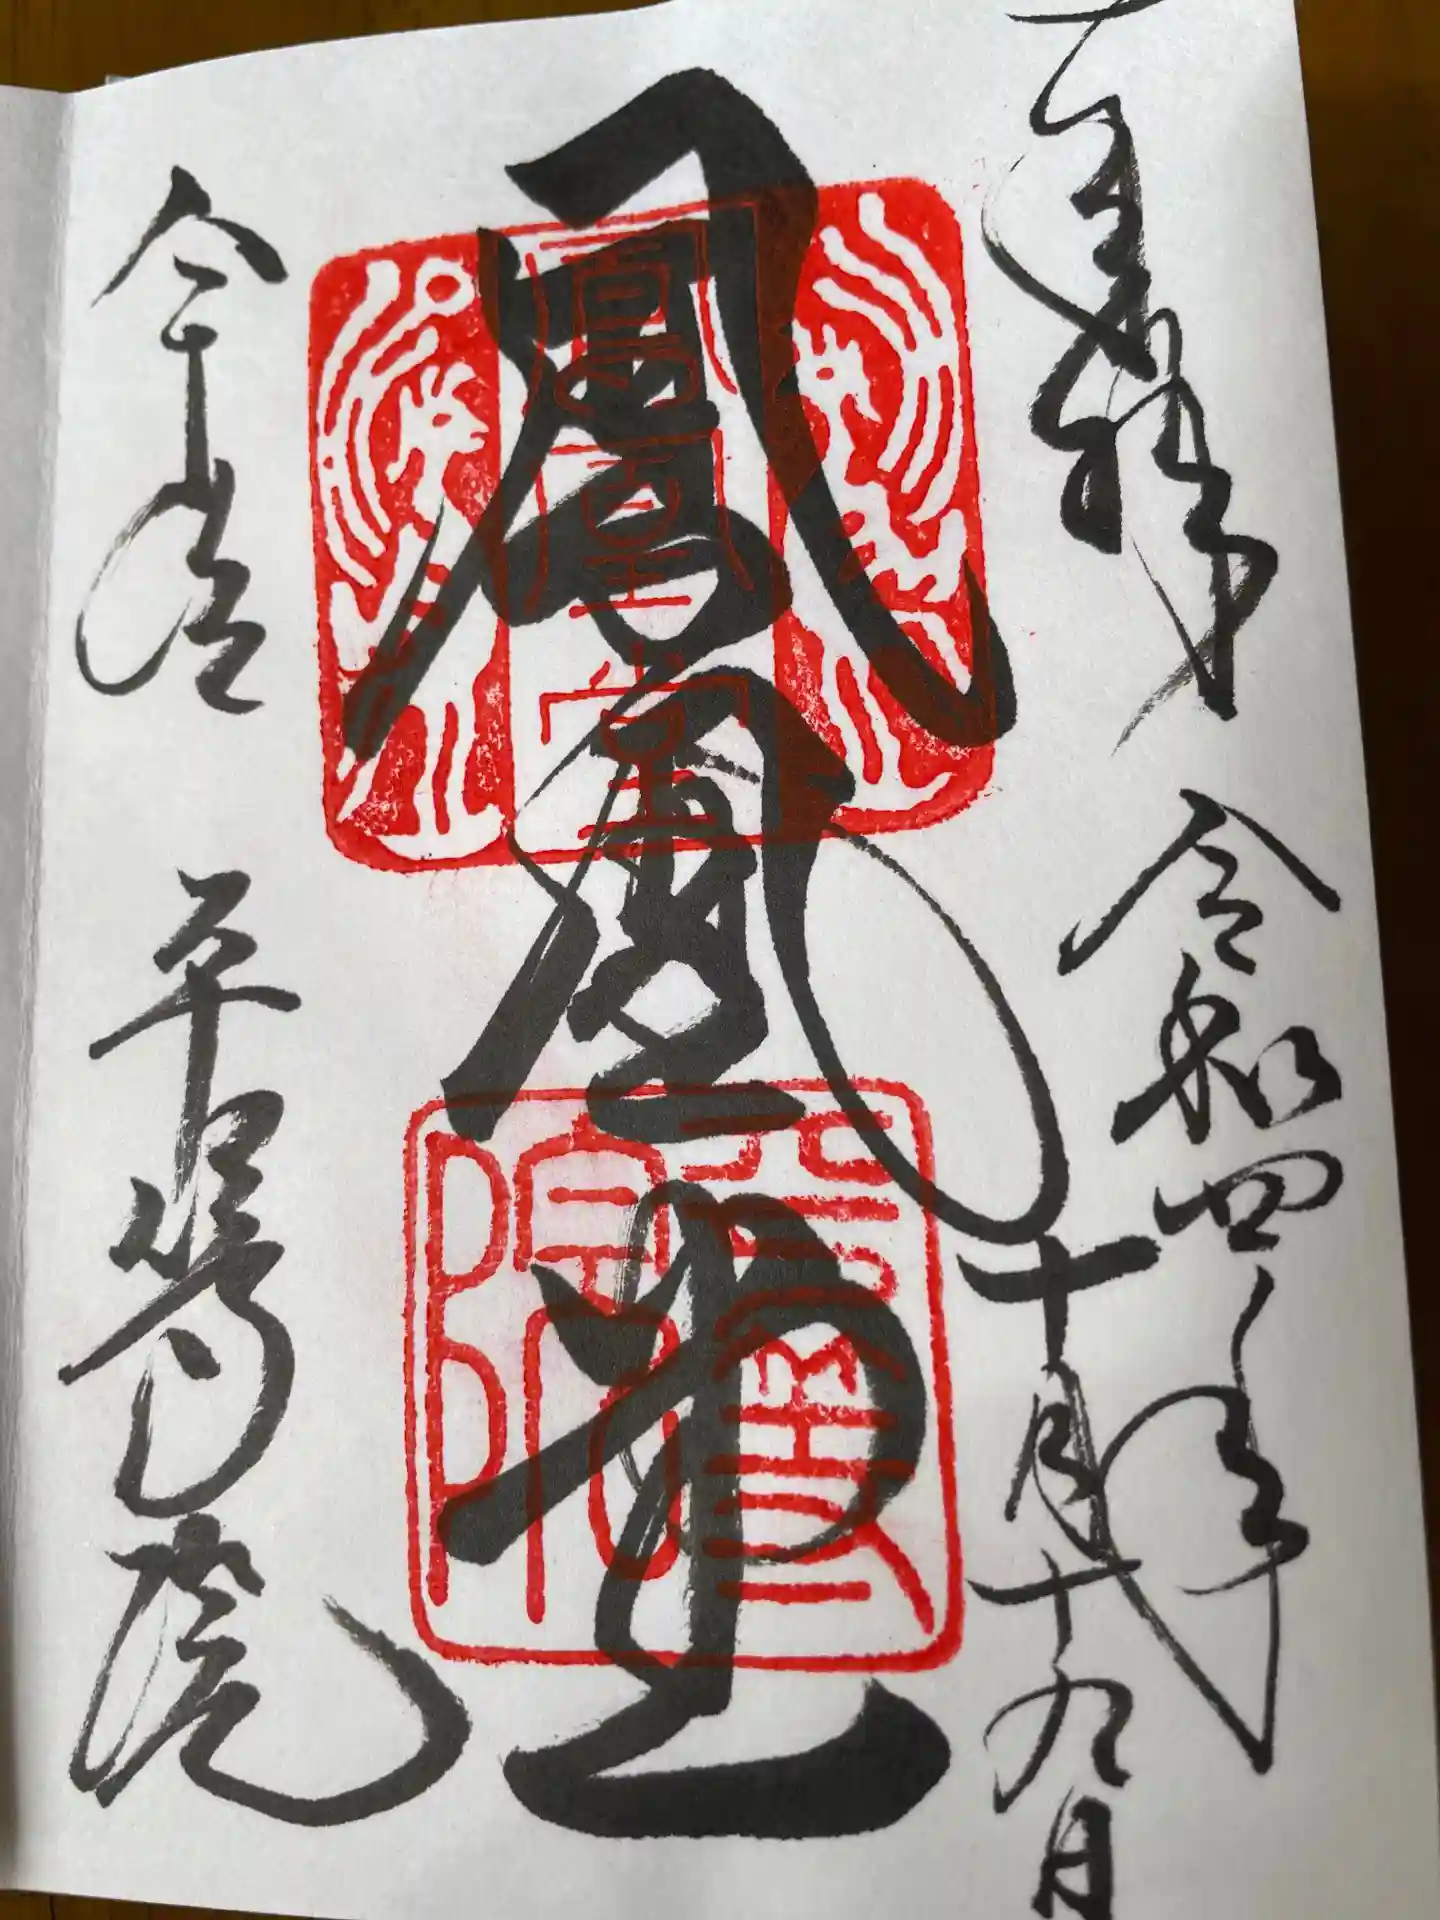 奉拝 令和四年
十月十九日
鳳凰堂
鳳凰堂
平等院印
宇治 平等院